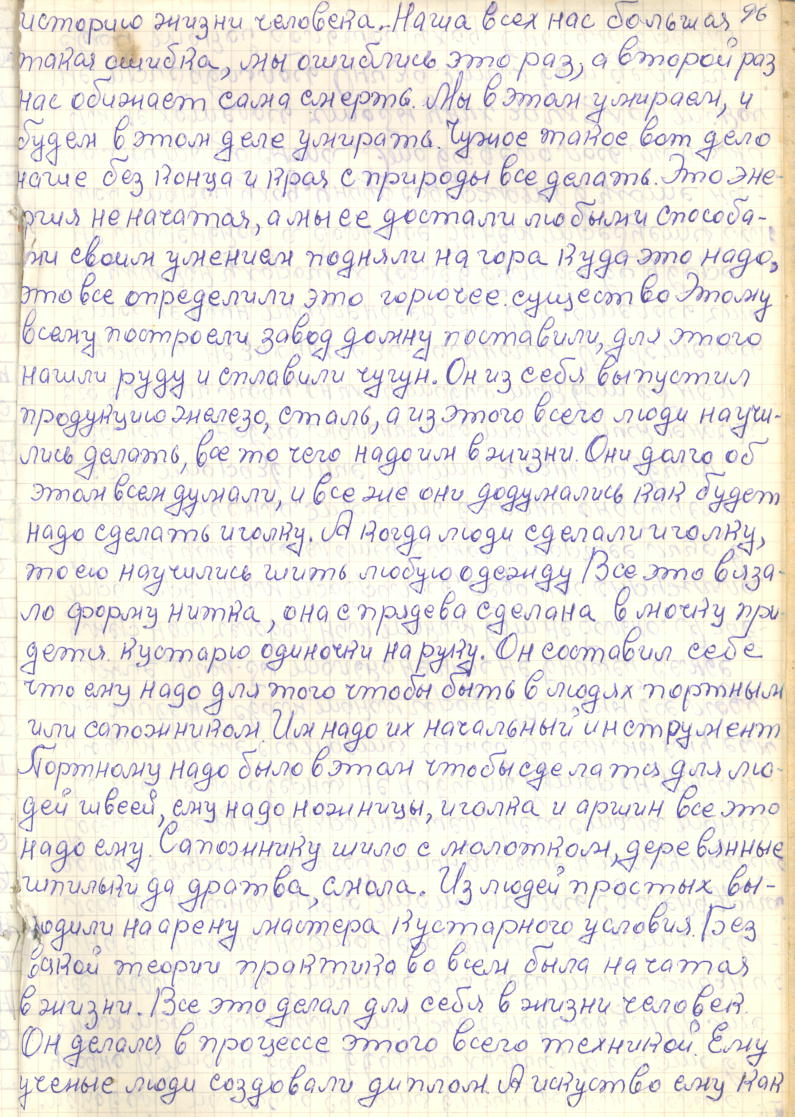 96
историю жизни человека. Наша всех нас большая
такая ошибка, мы ошиблись это раз, а второй раз
нас обижает сама смерть. Мы в этом умираем, и
будем в этом деле умирать. Чужое такое вот дело
наше без конца и края с природы все делать. Это эне-
ргия не начатая, а мы ее достали любыми способа-
ми своим умением подняли на гора куда это надо,
это все определили это горючее существо Этому
всему построели завод домну поставили, для этого
нашли руду и сплавили чугун. Он из себя выпустил
продукцию железо, сталь, а из этого всего люди научи-
лись делать, все то чего надо им в жизни. Они долго об
этом всем думали, и все же они додумались как будет
надо сделать иголку. А когда люди сделали иголку,
то ею научились шить любую одежду Все это вяза-
ло форму нитка, она с прядева сделана в мочку при-
дется кустарю одиночки на руку. Он составил себе
что ему надо для того чтобы быть в людях портным
или сапожником. Им надо их начальный инструмент
Портному надо было в этом чтобы сделатся для лю-
дей швеей, ему надо ножницы, иголка и аршин все это
надо ему. Сапожнику шило с молотком, деревянные
шпильки да дратва, смола. Из людей простых вы-
ходили на арену мастера кустарного условия. Без
всякой теории практика во всем была начатая
в жизни. Все это делал для себя в жизни человек.
Он делался в процессе этого всего техникой. Ему
ученые люди создовали диплом. А искуство ему как